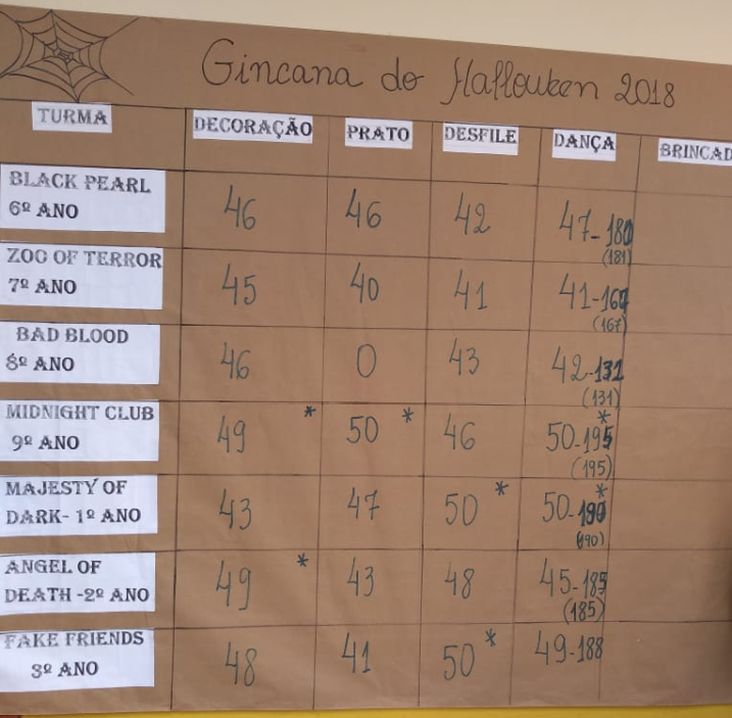 Gincana do Hallouken 2018
TURMA DECORAÇÃO PRATO DESFILE DANÇA BRINCAD
BLACK PEARL
6º ANO 46 46 42 47-180
(181)
ZOO OF TERROR
7º ANO 45 40 41 41-167
(167)
BAD BLOOD
8º ANO 46 0 43 42-131
(131)
MIDNIGHT CLUB
9º ANO 49 * 50 * 46 50-195 *
(195)
MAJESTY OF
DARK- 1º ANO 43 47 50 * 50-190 *
(190)
ANGEL OF
DEATH -2º ANO 49 * 43 48 45-185
(185)
FAKE FRIENDS
3º ANO 48 41 50 * 49-188